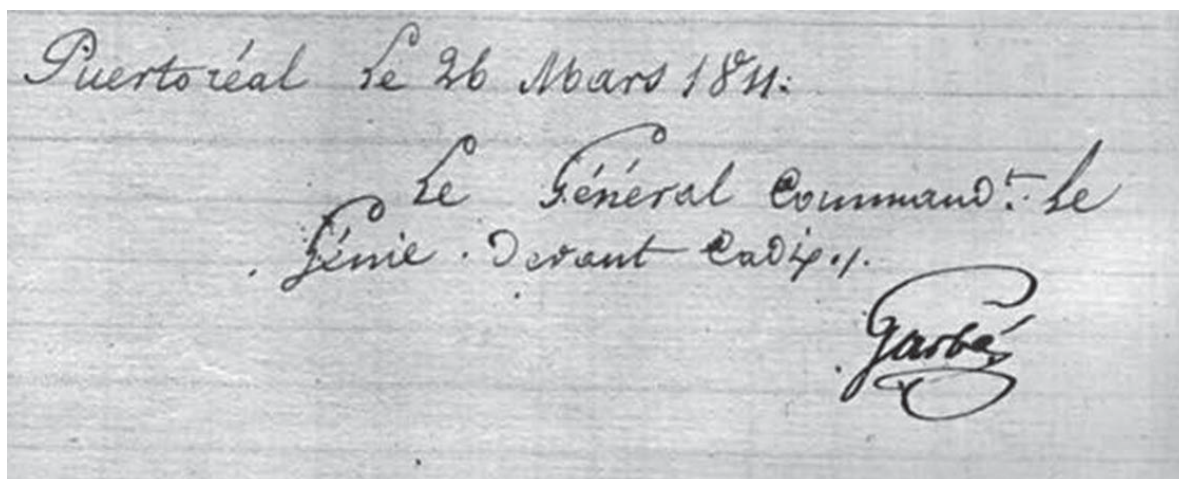 Puertoréal Le 26 Mars 1811.
Le Général Command.t Le
Génie. Devant Cadix./.
Garbé